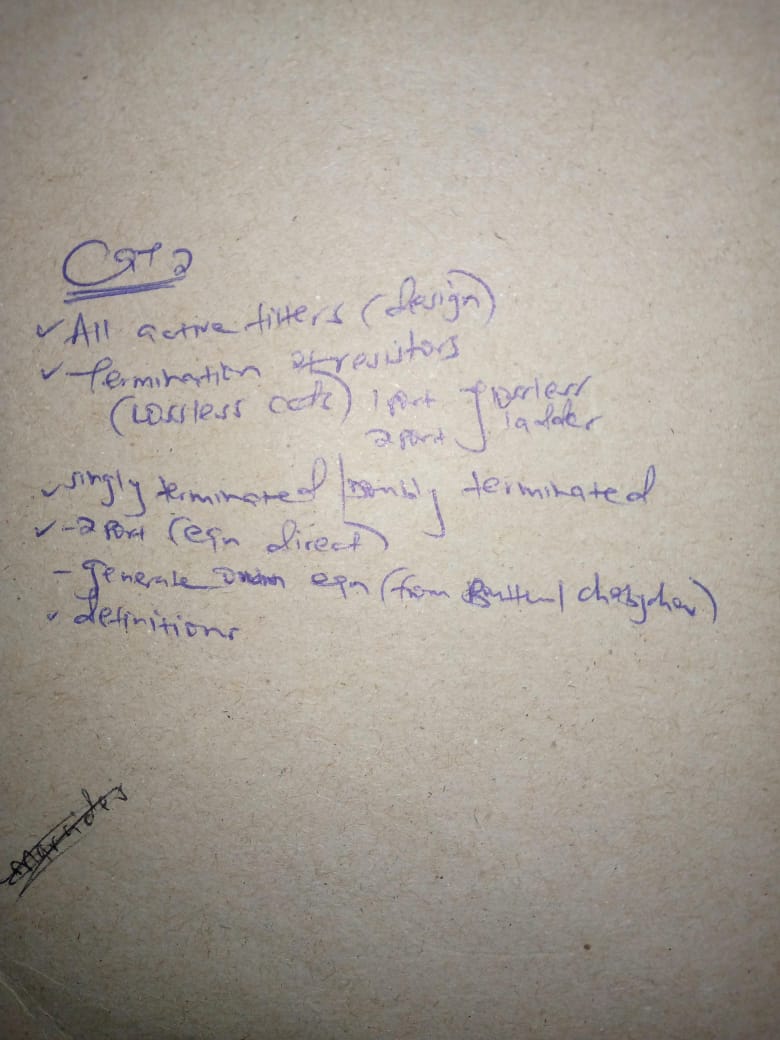 CAT 2
✓ All active filters (design)
✓ Termination of resistors
(Lossless ccts) 1 port } lossless
2 port ladder
✓ singly terminated / Doubly terminated
✓ - 2 port (eqn direct)
- generate own eqn (from Butter / chebychev)
✓ definitions